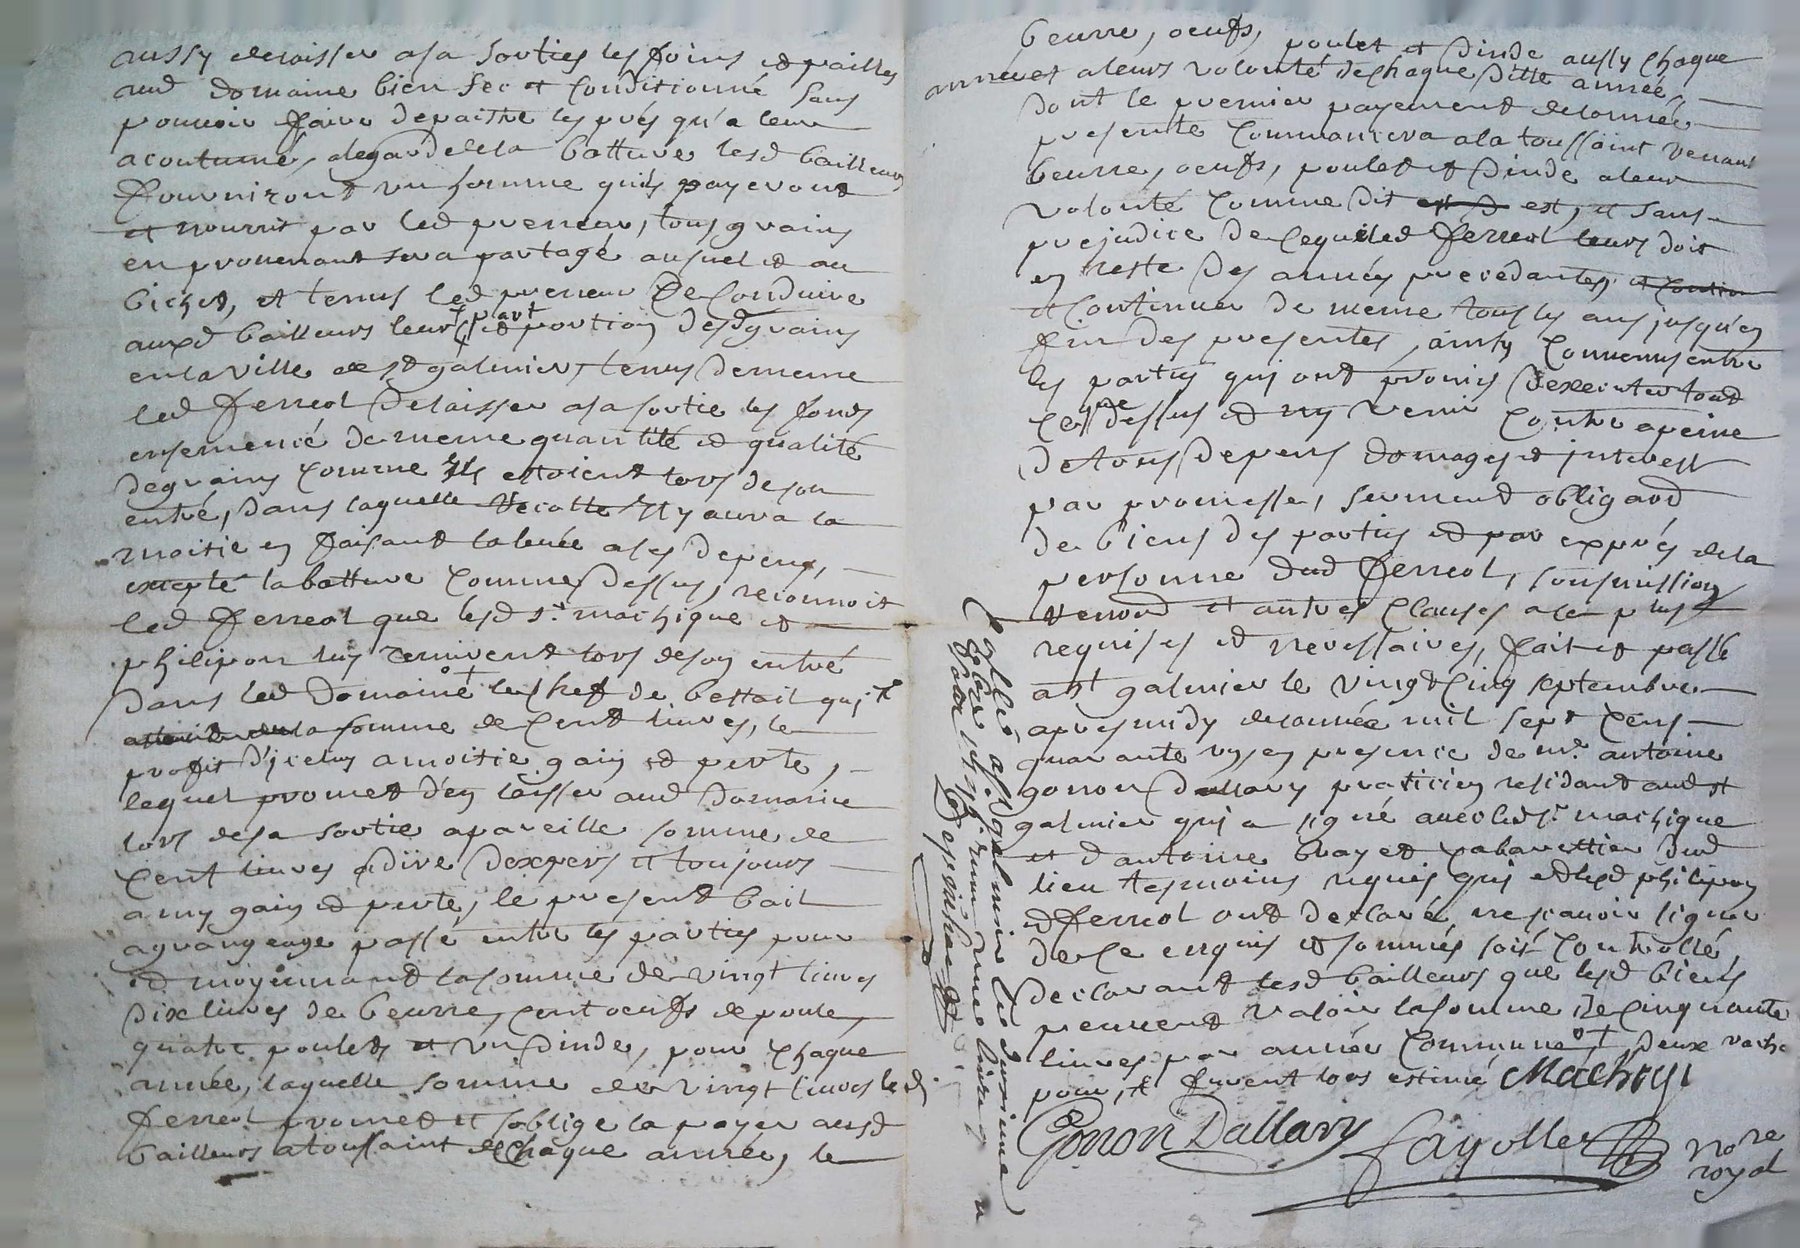 aussy delaisser a sa sorties les foins et pailles
aud domaine bien sec et conditionné sans
pouvoir faire depaitre les prés qu'a leur
acoutumé, alegard de la batture lesd bailleurs
fourniront un homme quils payeront
et nourrit par led preneur, tous grains
en provenant sera partagé au suel et au
bichet, et tenus led preneur de conduire
auxd bailleurs leur part et portion desd grains
en la ville de st galmier, tenus de meme
led ferreol delaisser a sa sortie les fonds
ensemencé de meme quantité et qualité
de grains comme ils estoient lors de son
entré, dans laquelle recolte il y aura la
moitie en faisant la levée a ses depens,
excepté la batture comme dessus, reconnoit
led ferreol que lesd sr. machique et
philipon luy remirent lors de son entré
dans led domaine le chef de bestail qui
la somme de cent livres, le
profit d'iceluy a moitie gain et perte,
lequel promet d'en laisser aud domaine
lors de sa sortie a pareille somme de
cent livres a dire dexpers et toujours
a my gain et perte, le present bail
a grangeage passé entre les parties pour
et moyennant la somme de vingt livres
dix livres de beurre, cent oeufs de poule,
quatre poulets et un dinde, pour chaque
année, laquelle somme de vingt livres led
ferreol promet et soblige la payer ausd
bailleurs a toussaint de chaque année, le
beurre, oeufs, poulet et dinde aussy chaque
année et a leurs volonté de chaque ditte année,
dont le premier payement de lannée
presente commancera a la toussaint venant
beurre, oeufs, poulet et dinde a leur
volonté comme dit est, et sans
prejudice de ce que led ferreol leurs doit
en reste des années precedantes
et continuer de meme tous les ans jusqu'en
fin des presentes, ainsy convenus entre
les parties qui ont promis dexecuter tout
ce que dessus et ny venir contre a peine
de tous depens domages et interest
par promesse, serment obligaon
de biens des parties et par exprés de la
personne dud ferreol, soumission
renond et autres clauses a ce plus
requises et necessaires, fait et passé
a st galmier le vingt cinq septembre
apres midy de lannée mil sept cens
quarante un en presence de mr. antoine
gonon Dallary praticien residant aud st
galmier qui a signé avec led sr. machique
et d antoine brayet cabarettier dud
lieu tesmoins requis qui et led philipon
et ferreol ont declaré ne scavoir signer
de ce enquis et sommés soit controllé,
declarant lesd bailleurs que lesd biens
peuvent valoir la somme de cinquante
livres par année commune deux vaches
pour, furent lors estimé Machigi
Gonon Dallary Fayolle nore
royal
Collé a st galmier le durieme